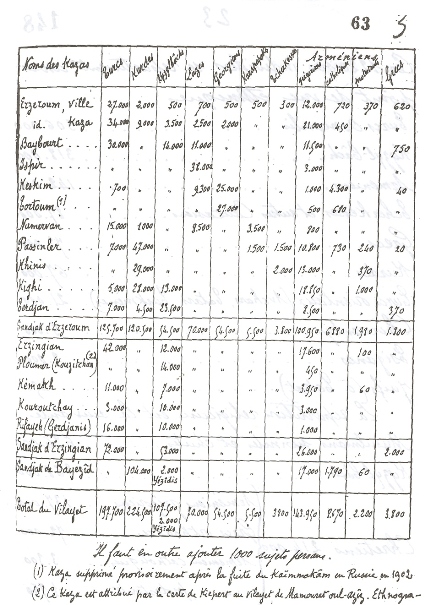 63
5
Arméniens
Noms des Kazas | Turcs | Kurdes | Kyzylbachs | Lazes | Géorgiens | Karapapaks | Tcherkesses | grégoriens | catholiques | protestants | Grecs
Erzeroum, Ville | 27.000 | 2.000 | 500 | 700 | 500 | 500 | 300 | 12.000 | 720 | 370 | 620
id. Kaza | 34.000 | 9.000 | 3.500 | 2500 | 2.000 | " | " | 21.000 | 450 | " | "
Baybourt | 30.000 | " | 14.000 | 11.000 | " | " | " | 11.500 | " | " | 750
Ispir | " | " | " | 38.000 | " | " | " | 3.000 | " | " | "
Keskim | 700 | " | " | 9300 | 25.000 | " | " | 1.000 | 4.300 | " | 40
Tortoum (1) | " | " | " | " | 27.000 | " | " | 500 | 680 | " | "
Namervan | 15.000 | 1000 | " | 8.500 | " | 3.500 | " | 800 | " | " | "
Passinler | 7.000 | 47.000 | " | " | " | 1.500 | 1.500 | 10.800 | 730 | 240 | 20
Khinis | " | 29.000 | " | " | " | " | 2.000 | 13.000 | " | 370 | "
Kighi | 5.000 | 28.000 | 13.000 | " | " | " | " | 18.850 | " | 1.000 | "
Terdjan | 7.000 | 4.500 | 23.500 | " | " | " | " | 8.500 | " | " | 370
Sandjak d'Erzeroum | 125.700 | 120.500 | 54.500 | 70.000 | 54.500 | 5.500 | 3.800 | 100.950 | 6880 | 1.980 | 1.800
Erzingian | 42.000 | " | 12.000 | " | " | " | " | 17.600 | " | 100 | "
Ploumer (Kouzitchan) (2) | " | " | 14.000 | " | " | " | " | 450 | " | " | "
Kémakh | 11.000 | " | 7.000 | " | " | " | " | 3.950 | " | 60 | "
Kouroutchay | 3.000 | " | 10.000 | " | " | " | " | 3.000 | " | " | "
Rifayeh (Gerdjanis) | 16.000 | " | 10.000 | " | " | " | " | 1.000 | " | " | "
Sandjak d'Erzingian | 72.000 | " | 53.000 | " | " | " | " | 26.000 | " | " | 2.000
Sandjak de Bayezid | " | 104.000 | 2.000 Yézidis | " | " | " | " | 17.000 | 1.790 | 60 | "
Total du Vilayet | 197.700 | 224.500 | 107.500 2.000 Yézidis | 70.000 | 54.500 | 5.500 | 3800 | 143.950 | 8670 | 2.200 | 3.800
Il faut en outre ajouter 1000 sujets persans.
(1) Kaza supprimé provisoirement après la fuite du Kaïmmakâm en Russie en 1902
(2) Ce Kaza est attribué par la carte de Kiepert au Vilayet de Mamouret oul-Azîz. Ethnogra-